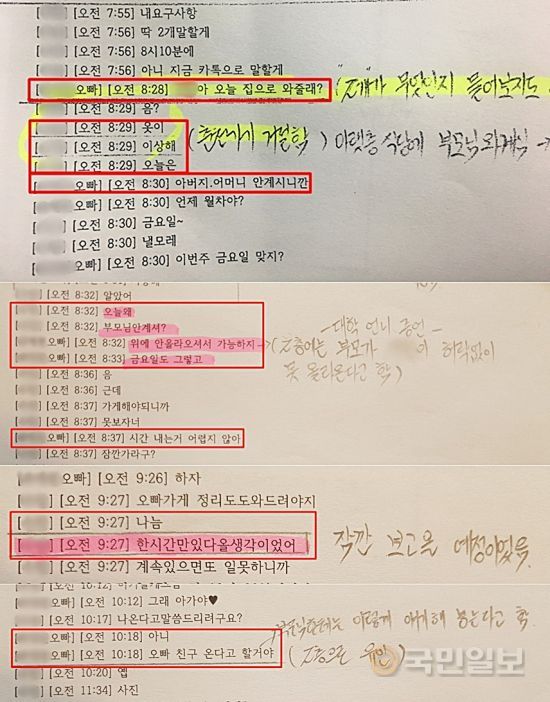 [오전 7:55] 내요구사항
[오전 7:56] 딱 2개말할게
[오전 7:56] 8시10분에
[오전 7:56] 아니 지금 카톡으로 말할게
오빠] [오전 8:28] 아 오늘 집으로 와줄래?
[오전 8:29] 음?
[오전 8:29] 옷이
[오전 8:29] 이상해
[오전 8:29] 오늘은
아랫층 식당에 부모님
오빠] [오전 8:30] 아버지.어머니 안계시니깐
[오전 8:30] 언제 월차야?
오빠] [오전 8:30] 금요일~
오빠] [오전 8:30] 낼모레
오빠] [오전 8:30] 이번주 금요일 맞지?
[오전 8:32] 알았어
[오전 8:32] 오늘왜
[오전 8:32] 부모님안계셔?
오빠] [오전 8:32] 위에 안올라오셔서 가능하지
오빠] [오전 8:33] 금요일도 그렇고
[오전 8:36] 음
[오전 8:36] 근데
[오전 8:37] 가게해야되니까
[오전 8:37] 못보자너
오빠] [오전 8:37] 시간 내는거 어렵지 않아
[오전 8:37] 잠깐가라구?
-대학 언니 증언-
허락없이
못 올라온다고 함)
오빠] [오전 9:26] 하자
[오전 9:27] 오빠가게 정리도도와드려야지
[오전 9:27] 나눔
[오전 9:27] 한시간만있다올생각이었어
[오전 9:27] 계속있으면또 일못하니까
잠깐 보고올 예정이었음.
오빠] [오전 10:12] 그래 아가야♥
[오전 10:17] 나온다고말씀드리려구요?
오빠] [오전 10:18] 아니
오빠] [오전 10:18] 오빠 친구 온다고 할거야
[오전 10:20] 옙
[오전 11:34] 사진
국민일보